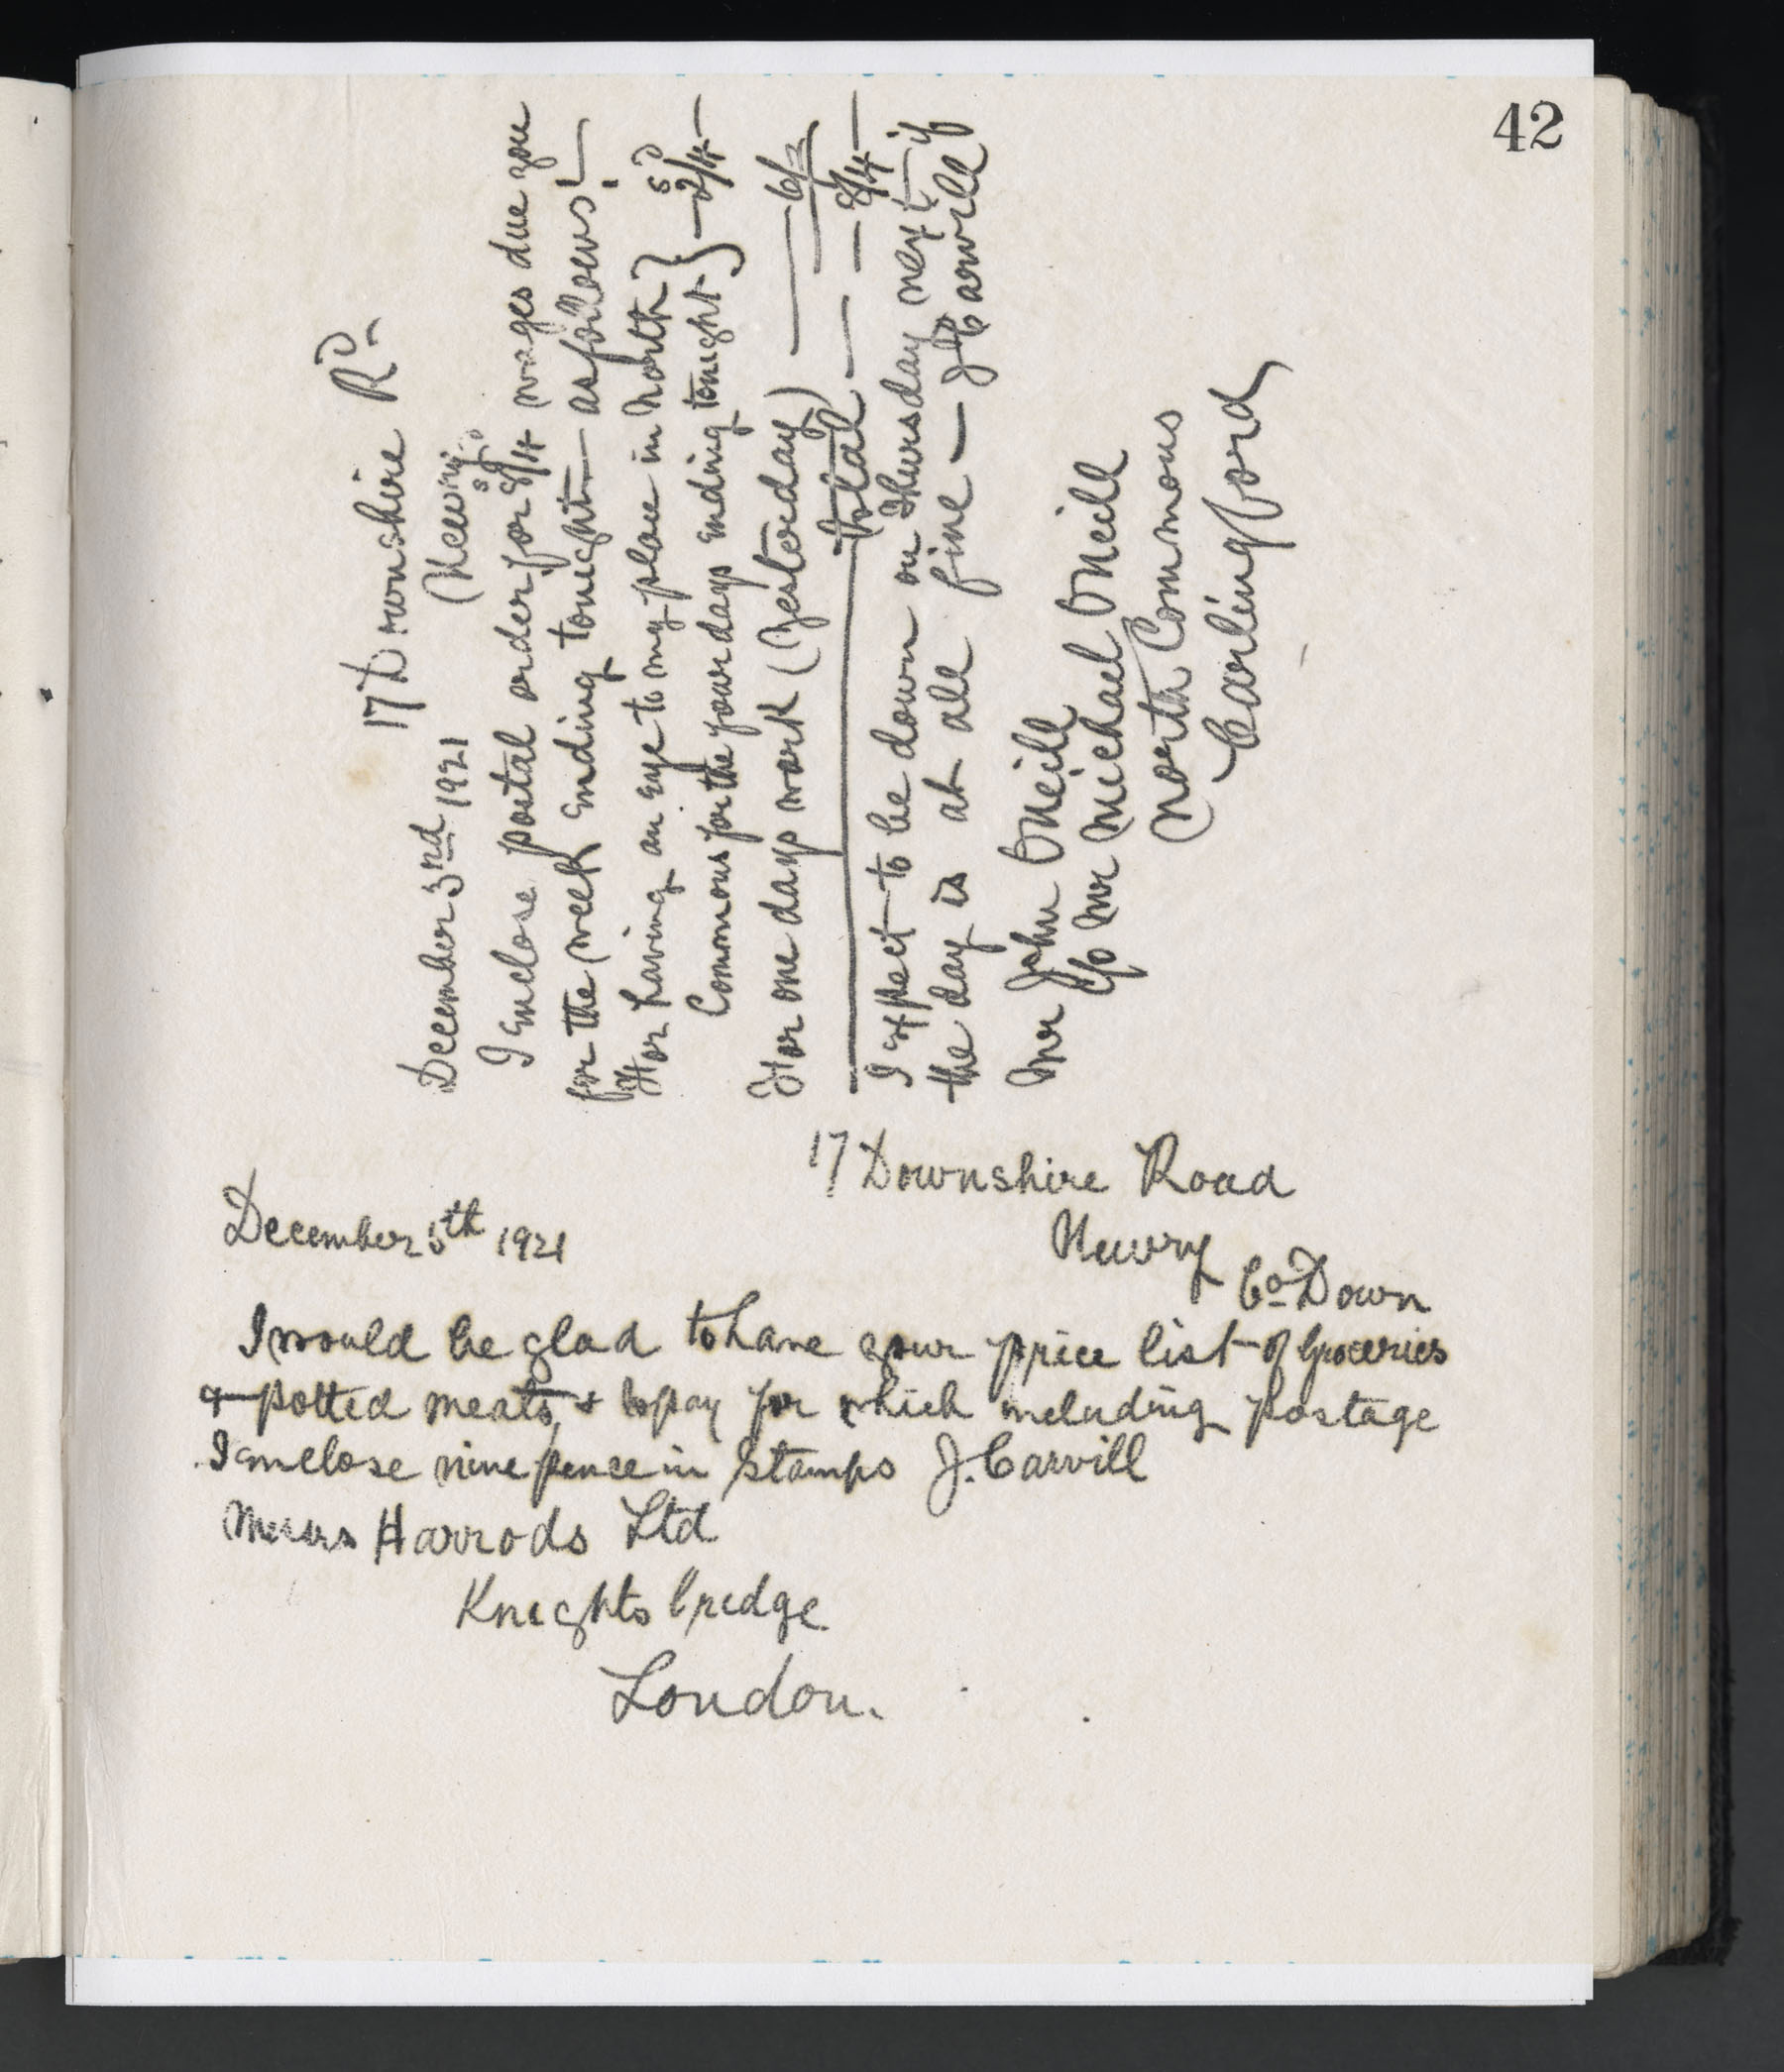 42
17 Downshire Rd
Newry
December 3rd 1921
I Enclose postal order for 8/4 wages due you
for the week Ending tonight as follows!—
For having an Eye to my place in North } s d
Commons for the four days Ending tonight } — 2/4 —
For one days work (Yesterday) —— 6/
Total — — — 8/4 —
I Expect to be down on Thursday next if
the day is at all fine — J Carvill
Mr John ONeill
C/o Mr Michael ONeill
North Commons
Carlingford
17 Downshire Road
December 5th 1921
Newry
Co Down
I would be glad to have your price list of Groceries
& potted meats, & to pay for which including Postage
I Enclose nine pence in Stamps J. Carvill
Messrs Harrods Ltd
Knights bridge
London.